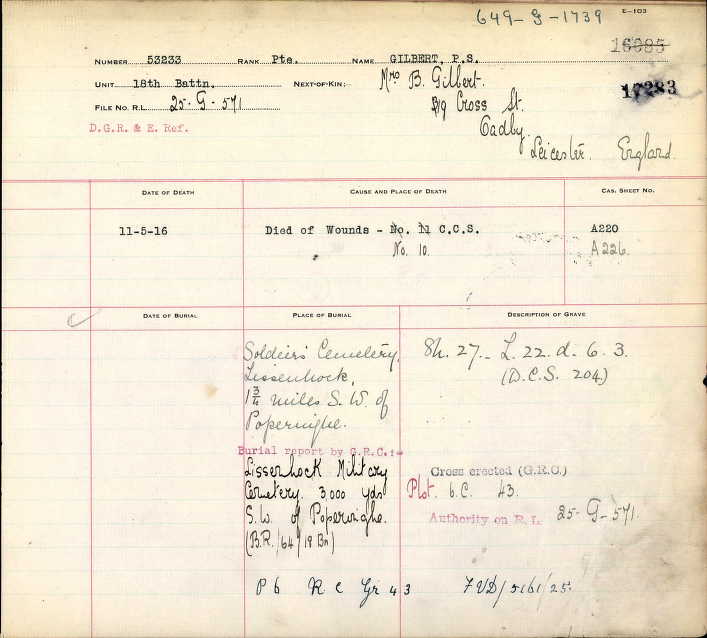 649-G-1739
E-103
16085
NUMBER 53233 RANK Pte. NAME GILBERT, P.S.
UNIT 18th Battn. NEXT-OF-KIN:- Mrs B. Gilbert.
17283
FILE NO. R.L. 25-G-571 Cross St.
D.G.R. & E. Ref. Oadby.
Leicester. England.
DATE OF DEATH CAUSE AND PLACE OF DEATH CAS. SHEET NO.
11-5-16 Died of Wounds - No. 11 C.C.S. A220
No. 10. A226.
DATE OF BURIAL PLACE OF BURIAL DESCRIPTION OF GRAVE
Soldiers' Cemetery, Sh. 27. - L. 22. d. 6. 3.
Lissenhock, (D.C.S. 204)
1 3/4 miles S.W. of
Poperinghe.
Burial report by G.R.C.:-
Lissenhock Military Cross erected (G.R.C.)
Cemetery. 3,000 yds Plot. 6.C. 43.
S.W. of Poperinghe. Authority on R.L. 25-G-571.
(B.R./64/18 Bn)
P 6 R C Gr 43 FVD/5161/25.